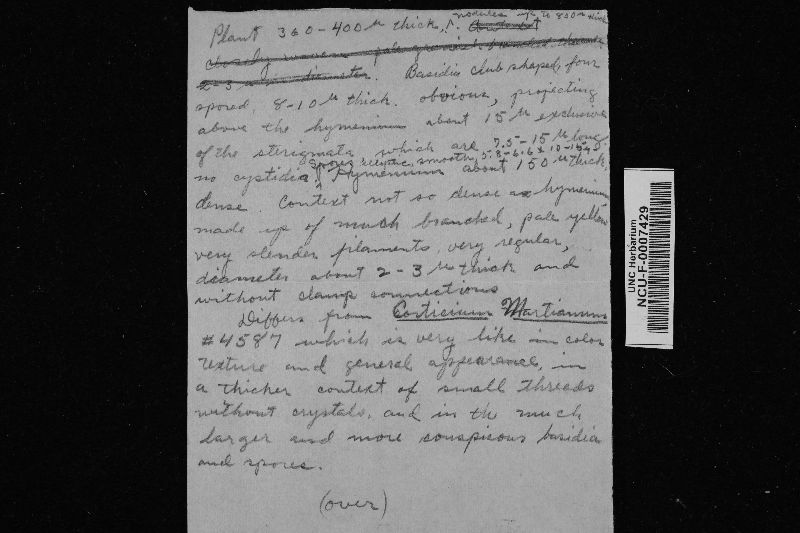 Plant 360-400 µ thick, nodules up to 800 µ thick
closely woven
2-3 µ in diameter. Basidia club shaped, four
spored, 8-10 µ thick. obvious, projecting
above the hymenium about 15 µ exclusive
of the sterigmata which are 7.5-15 µ long.
no cystidia. Spores elliptic, smooth, Hymenium about 150 µ thick,
dense. Context not so dense as hymenium
made up of much branched, pale yellow
very slender filaments, very regular,
diameter about 2-3 µ thick and
without clamp connections
Differs from Corticium Martianum
#4587 which is very like in color
texture and general appearance, in
a thicker context of small threads
without crystals, and in the much
larger and more conspicous basidia
and spores.
(over)
UNC Herbarium
NCU-F-0007429